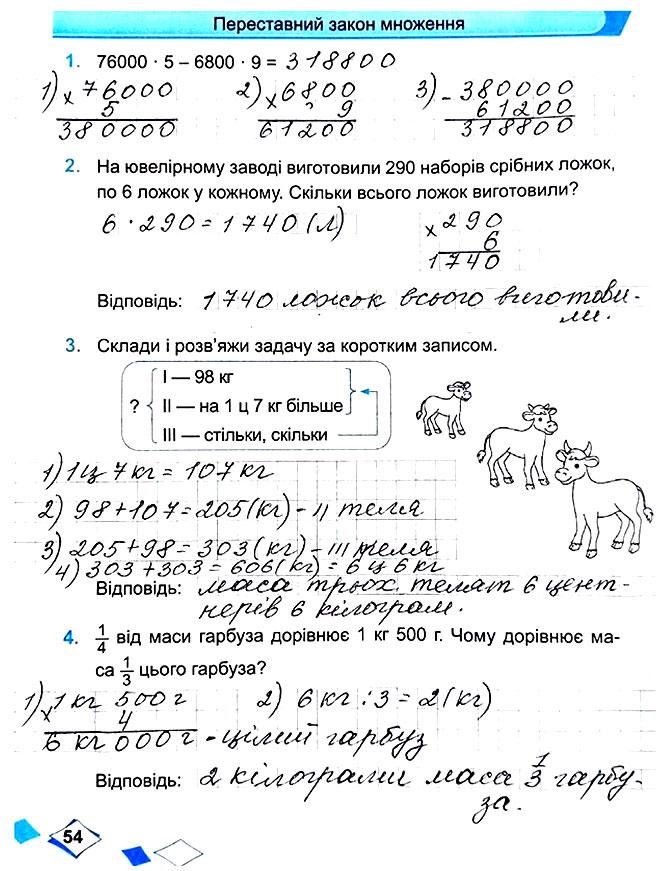 Переставний закон множення
1. 76000 · 5 – 6800 · 9 = 318800
1) × 76000 2) × 6800 3) - 380000
5 9 61200
380000 61200 318800
2. На ювелірному заводі виготовили 290 наборів срібних ложок,
по 6 ложок у кожному. Скільки всього ложок виготовили?
6 · 290 = 1740 (л) × 290
6
1740
Відповідь: 1740 ложок всього виготови-
ли.
3. Склади і розв'яжи задачу за коротким записом.
I — 98 кг
? II — на 1 ц 7 кг більше
III — стільки, скільки
1) 1 ц 7 кг = 107 кг
2) 98 + 107 = 205 (кг) - II теля
3) 205 + 98 = 303 (кг) - III теля
4) 303 + 303 = 606 (кг) = 6 ц 6 кг
Відповідь: маса трьох телят 6 цент-
нерів 6 кілограм.
4. 1/4 від маси гарбуза дорівнює 1 кг 500 г. Чому дорівнює ма-
са 1/3 цього гарбуза?
1) × 1 кг 500 г 2) 6 кг : 3 = 2 (кг)
4
6 кг 000 г - цілий гарбуз
Відповідь: 2 кілограми маса 1/3 гарбу-
за.
54